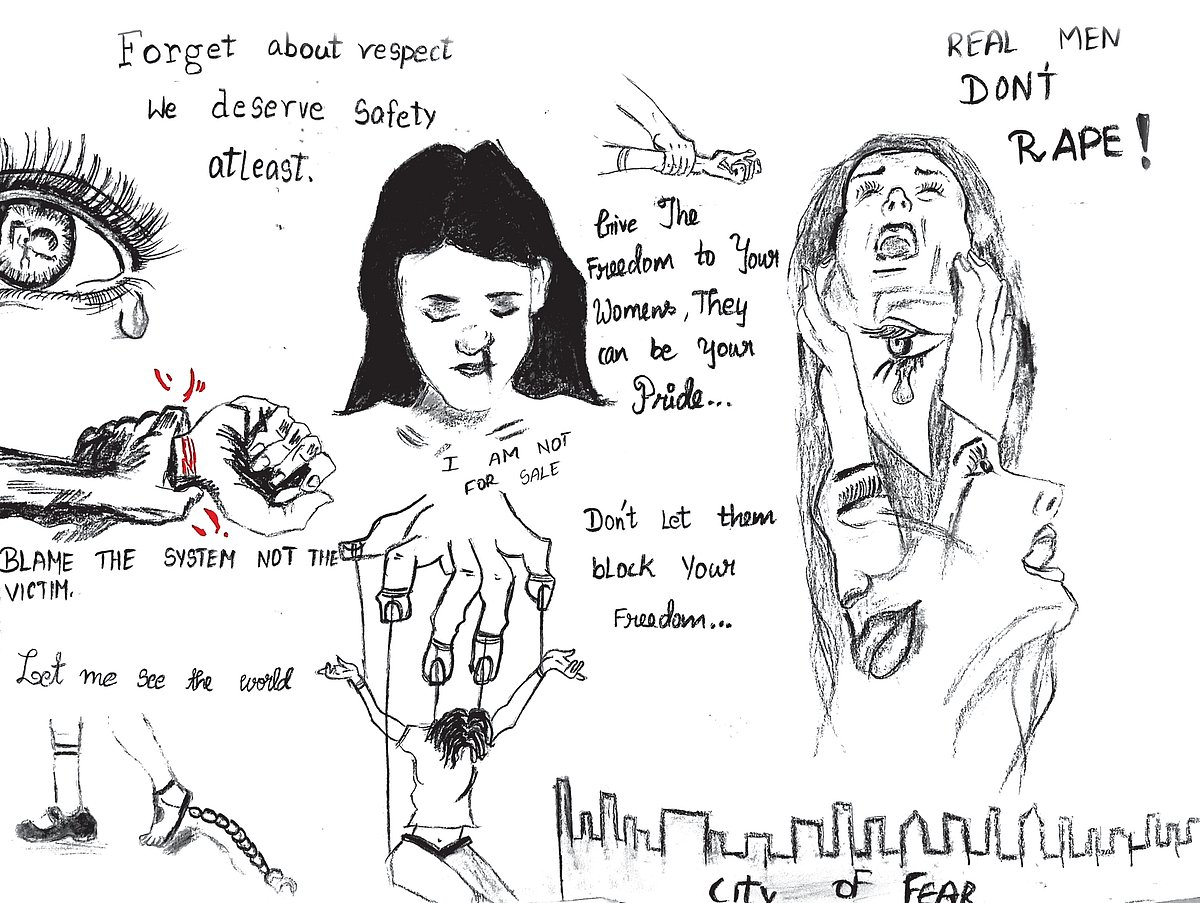 Forget about respect
We deserve safety
atleast.
REAL MEN
DON'T
RAPE!
Give The
Freedom to Your
Womens, They
can be your
Pride...
I AM NOT
FOR SALE
BLAME THE SYSTEM NOT THE
VICTIM.
Don't Let them
block Your
Freedom...
Let me see the world
City of FEAR